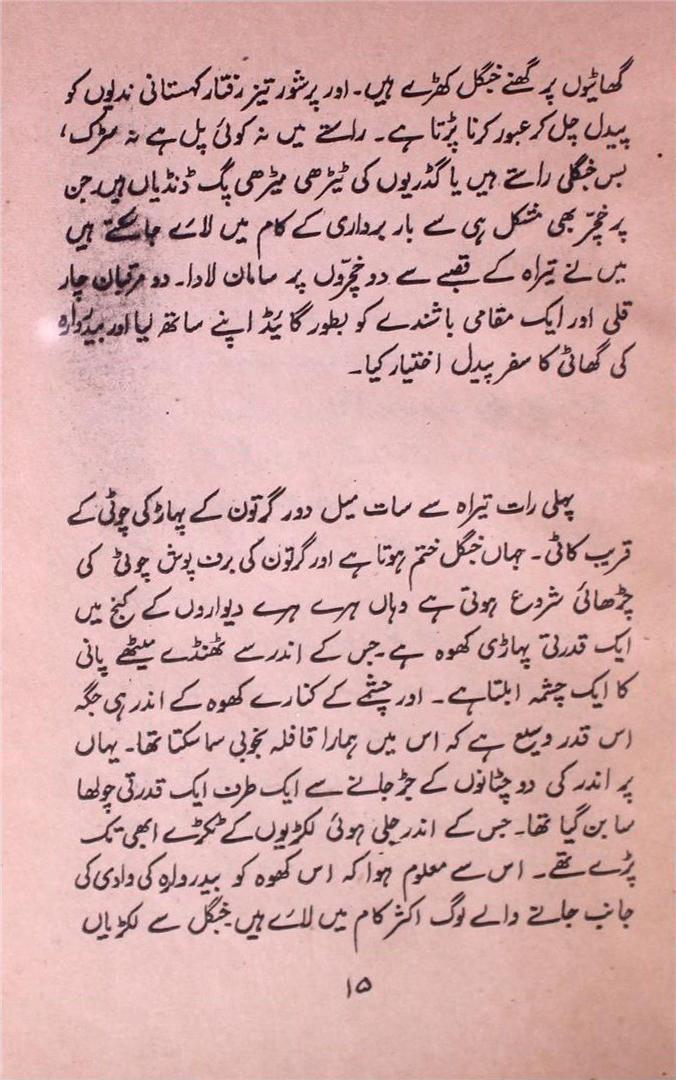 گھاٹیوں پر گھنے جنگل کھڑے ہیں۔ اور پرشور تیز رفتار کہستانی ندیوں کو
پیدل چل کر عبور کرنا پڑتا ہے۔ راستے میں نہ کوئی پل ہے نہ سڑک،
بس جنگلی راستے ہیں یا گڈریوں کی ٹیڑھی میڑھی پگ ڈنڈیاں ہیں جن
پر خچّر بھی مشکل ہی سے بار برداری کے کام میں لائے جا سکتے ہیں
میں نے تیراہ کے قصبے سے دو خچّروں پر سامان لادا۔ دو مرتبان چار
قلی اور ایک مقامی باشندے کو بطور گائیڈ اپنے ساتھ لیا اور بیدرواہ
کی گھاٹی کا سفر پیدل اختیار کیا۔
پہلی رات تیراہ سے سات میل دور گرتون کے پہاڑ کی چوٹی کے
قریب کاٹی۔ جہاں جنگل ختم ہوتا ہے اور گرتون کی برف پوش چوٹی کی
چڑھائی شروع ہوتی ہے وہاں ہرے ہرے دیواروں کے کنج میں
ایک قدرتی پہاڑی کھوہ ہے۔ جس کے اندر سے ٹھنڈے میٹھے پانی
کا ایک چشمہ ابلتا ہے۔ اور چشمے کے کنارے کھوہ کے اندر ہی جگہ
اس قدر وسیع ہے کہ اس میں ہمارا قافلہ بخوبی سما سکتا تھا۔ یہاں
پر اندر کی دو چٹانوں کے جڑ جانے سے ایک طرف ایک قدرتی چولھا
سا بن گیا تھا۔ جس کے اندر جلی ہوئی لکڑیوں کے ٹکڑے ابھی تک
پڑے تھے۔ اس سے معلوم ہوا کہ اس کھوہ کو بیدرواہ کی وادی کی
جانب جانے والے لوگ اکثر کام میں لائے ہیں۔ جنگل سے لکڑیاں
۱۵